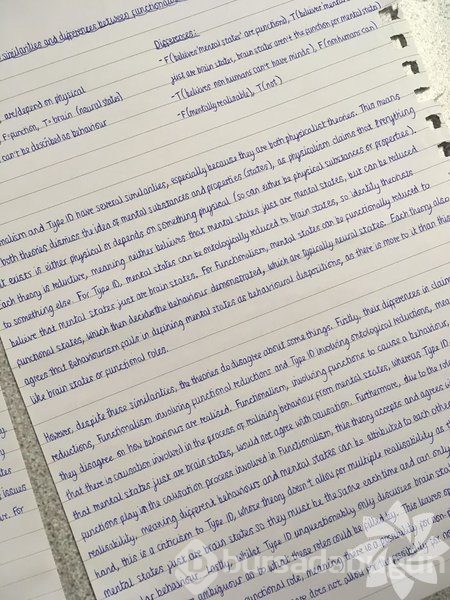 similarities and differences between functional
Differences:
are/depend on physical
- F (believes mental states are functions), T (believes mental states
just are brain states, brain states aren't the function for mental states)
F=function, T= brain (neural states)
- T (believes non humans can't have minds), F (nonhumans can)
can't be described as behaviour
- F (mentally realisable), T (not)
nalism and Type ID have several similarities, especially because they are both physicalist theories. This means
both theories dismiss the idea of mental substances and properties (states), as physicalism claims that everything
exists is either physical or depends on something physical (so can either be physical substances or properties).
Each theory is reductive, meaning neither believes that mental states just are mental states, but can be reduced
to something else. For Type ID, mental states can be ontologically reduced to brain states, so identity theorists
believe that mental states just are brain states. For Functionalism, mental states can be functionally reduced to
functional states, which then decides the behaviour demonstrated, which are typically neural states. Each theory also
agrees that Behaviourism fails in defining mental states as behavioural dispositions, as there is more to it than this
like brain states or functional roles.
However, despite these similarities, the theories do disagree about some things. Firstly, their differences in claim
reductions, Functionalism involving functional reductions and Type ID involving ontological reductions, mean
they disagree on how behaviours are realised. Functionalism, involving functions to cause a behaviour,
that there is causation involved in the process of realising behaviour from mental states, whereas Type ID
that mental states just are brain states, would not agree with causation. Furthermore, due to the role
functions play in the causation process involved in Functionalism, this theory accepts and agrees w
realisability, meaning different behaviours and mental states can be attributed to each other
hand, this is a criticism to Type ID, where theory doesn't allow for multiple realisability as th
mental states just are brain states so they must be the same each time and can only
behaviour. Lastly, whilst Type ID unquestionably only discusses brain stat
ambiguous as to how these roles could be fulfilled. This leaves op
functional role, meaning there is a possibility for non
does not allow
issues
For
bursadabugun